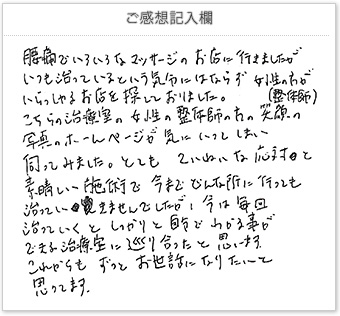 ご感想記入欄
腰痛でいろいろなマッサージのお店に行きましたが
いつも治っているという気分にはならず 女性の方が
いらっしゃるお店を探しておりました。
(整体師)
こちらの治療室の女性の整体師の方の笑顔の
写真のホームページが気にいってしまい
伺ってみました。とても ていねいな応対と
素晴しい施術で 今まで どんな所に行っても
治っていきませんでしたが、今は毎回
治っていくと しっかりと自分でわかる事が
できる治療室に巡り合ったと思います。
これからも ずっとお世話になりたいと
思ってます。